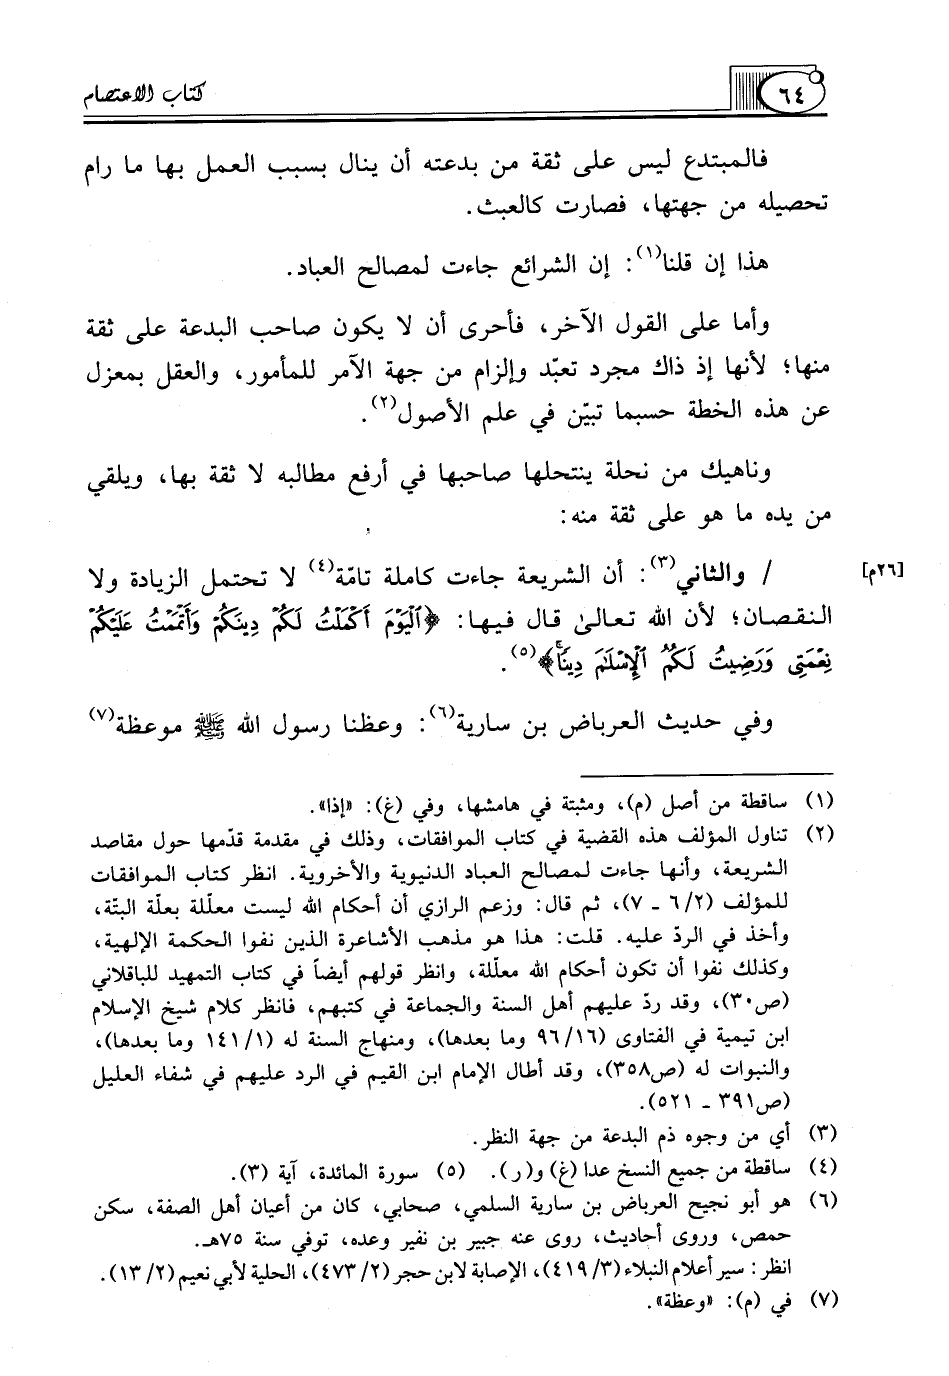 كتاب الاعتصام
٦٤
فالمبتدع ليس على ثقة من بدعته أن ينال بسبب العمل بها ما رام
تحصيله من جهتها، فصارت كالعبث.
هذا إن قلنا(١): إن الشرائع جاءت لمصالح العباد.
وأما على القول الآخر، فأحرى أن لا يكون صاحب البدعة على ثقة
منها؛ لأنها إذ ذاك مجرد تعبّد وإلزام من جهة الآمر للمأمور، والعقل بمعزل
عن هذه الخطة حسبما تبيّن في علم الأصول(٢).
وناهيك من نحلة ينتحلها صاحبها في أرفع مطالبه لا ثقة بها، ويلقي
من يده ما هو على ثقة منه:
[٢٦م]
/ والثاني(٣): أن الشريعة جاءت كاملة تامّة(٤) لا تحتمل الزيادة ولا
النقصان؛ لأن الله تعالىٰ قال فيها: ﴿ٱلْيَوْمَ أَكْمَلْتُ لَكُمْ دِينَكُمْ وَأَتْمَمْتُ عَلَيْكُمْ
نِعْمَتِى وَرَضِيتُ لَكُمُ ٱلْإِسْلَٰمَ دِينًا﴾(٥).
وفي حديث العرباض بن سارية(٦): وعظنا رسول الله ﷺ موعظة(٧)
(١) ساقطة من أصل (م)، ومثبتة في هامشها، وفي (غ): «إذا».
(٢) تناول المؤلف هذه القضية في كتاب الموافقات، وذلك في مقدمة قدّمها حول مقاصد
الشريعة، وأنها جاءت لمصالح العباد الدنيوية والأخروية. انظر كتاب الموافقات
للمؤلف (٦/٢ ـ ٧)، ثم قال: وزعم الرازي أن أحكام الله ليست معلّلة بعلّة البتّة،
وأخذ في الردّ عليه. قلت: هذا هو مذهب الأشاعرة الذين نفوا الحكمة الإلهية،
وكذلك نفوا أن تكون أحكام الله معلّلة، وانظر قولهم أيضاً في كتاب التمهيد للباقلاني
(ص٣٠)، وقد ردّ عليهم أهل السنة والجماعة في كتبهم، فانظر كلام شيخ الإسلام
ابن تيمية في الفتاوى (٩٦/١٦ وما بعدها)، ومنهاج السنة له (١٤١/١ وما بعدها)،
والنبوات له (ص٣٥٨)، وقد أطال الإمام ابن القيم في الرد عليهم في شفاء العليل
(ص٣٩١ ـ ٥٢١).
(٣) أي من وجوه ذم البدعة من جهة النظر.
(٤) ساقطة من جميع النسخ عدا (غ) و(ر). (٥) سورة المائدة، آية (٣).
(٦) هو أبو نجيح العرباض بن سارية السلمي، صحابي، كان من أعيان أهل الصفة، سكن
حمص، وروى أحاديث، روى عنه جبير بن نفير وعده، توفي سنة ٧٥هـ.
انظر: سير أعلام النبلاء (٤١٩/٣)، الإصابة لابن حجر (٤٧٣/٢)، الحلية لأبي نعيم (١٣/٢).
(٧) في (م): «وعظة».